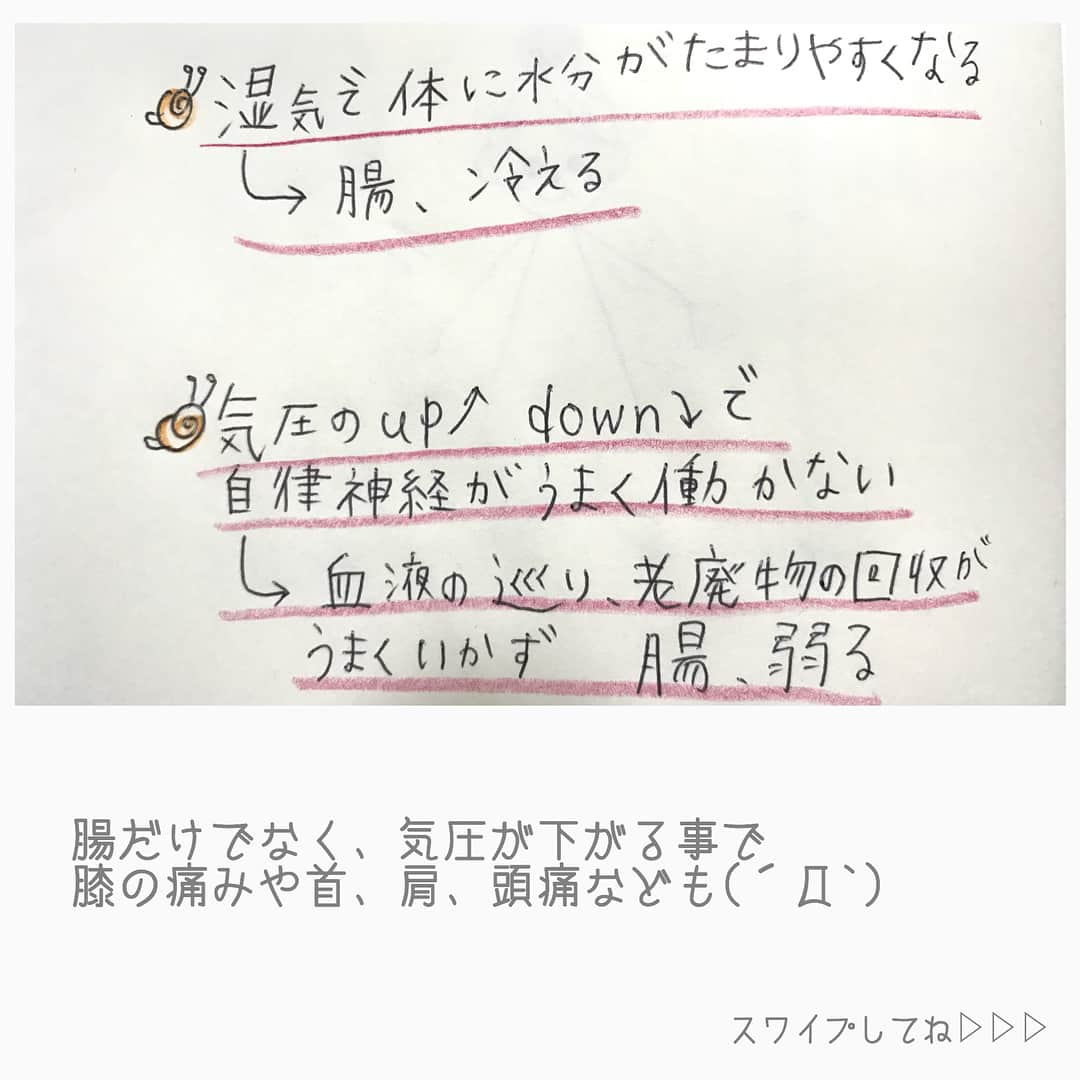 湿気で体に水分がたまりやすくなる
↳ 腸、冷える
気圧のup↗ down↘で
自律神経がうまく働かない
↳ 血液の巡り、老廃物の回収が
うまくいかず 腸、弱る
腸だけでなく、気圧が下がる事で
膝の痛みや首、肩、頭痛なども(´Д`)
スワイプしてね▷▷▷